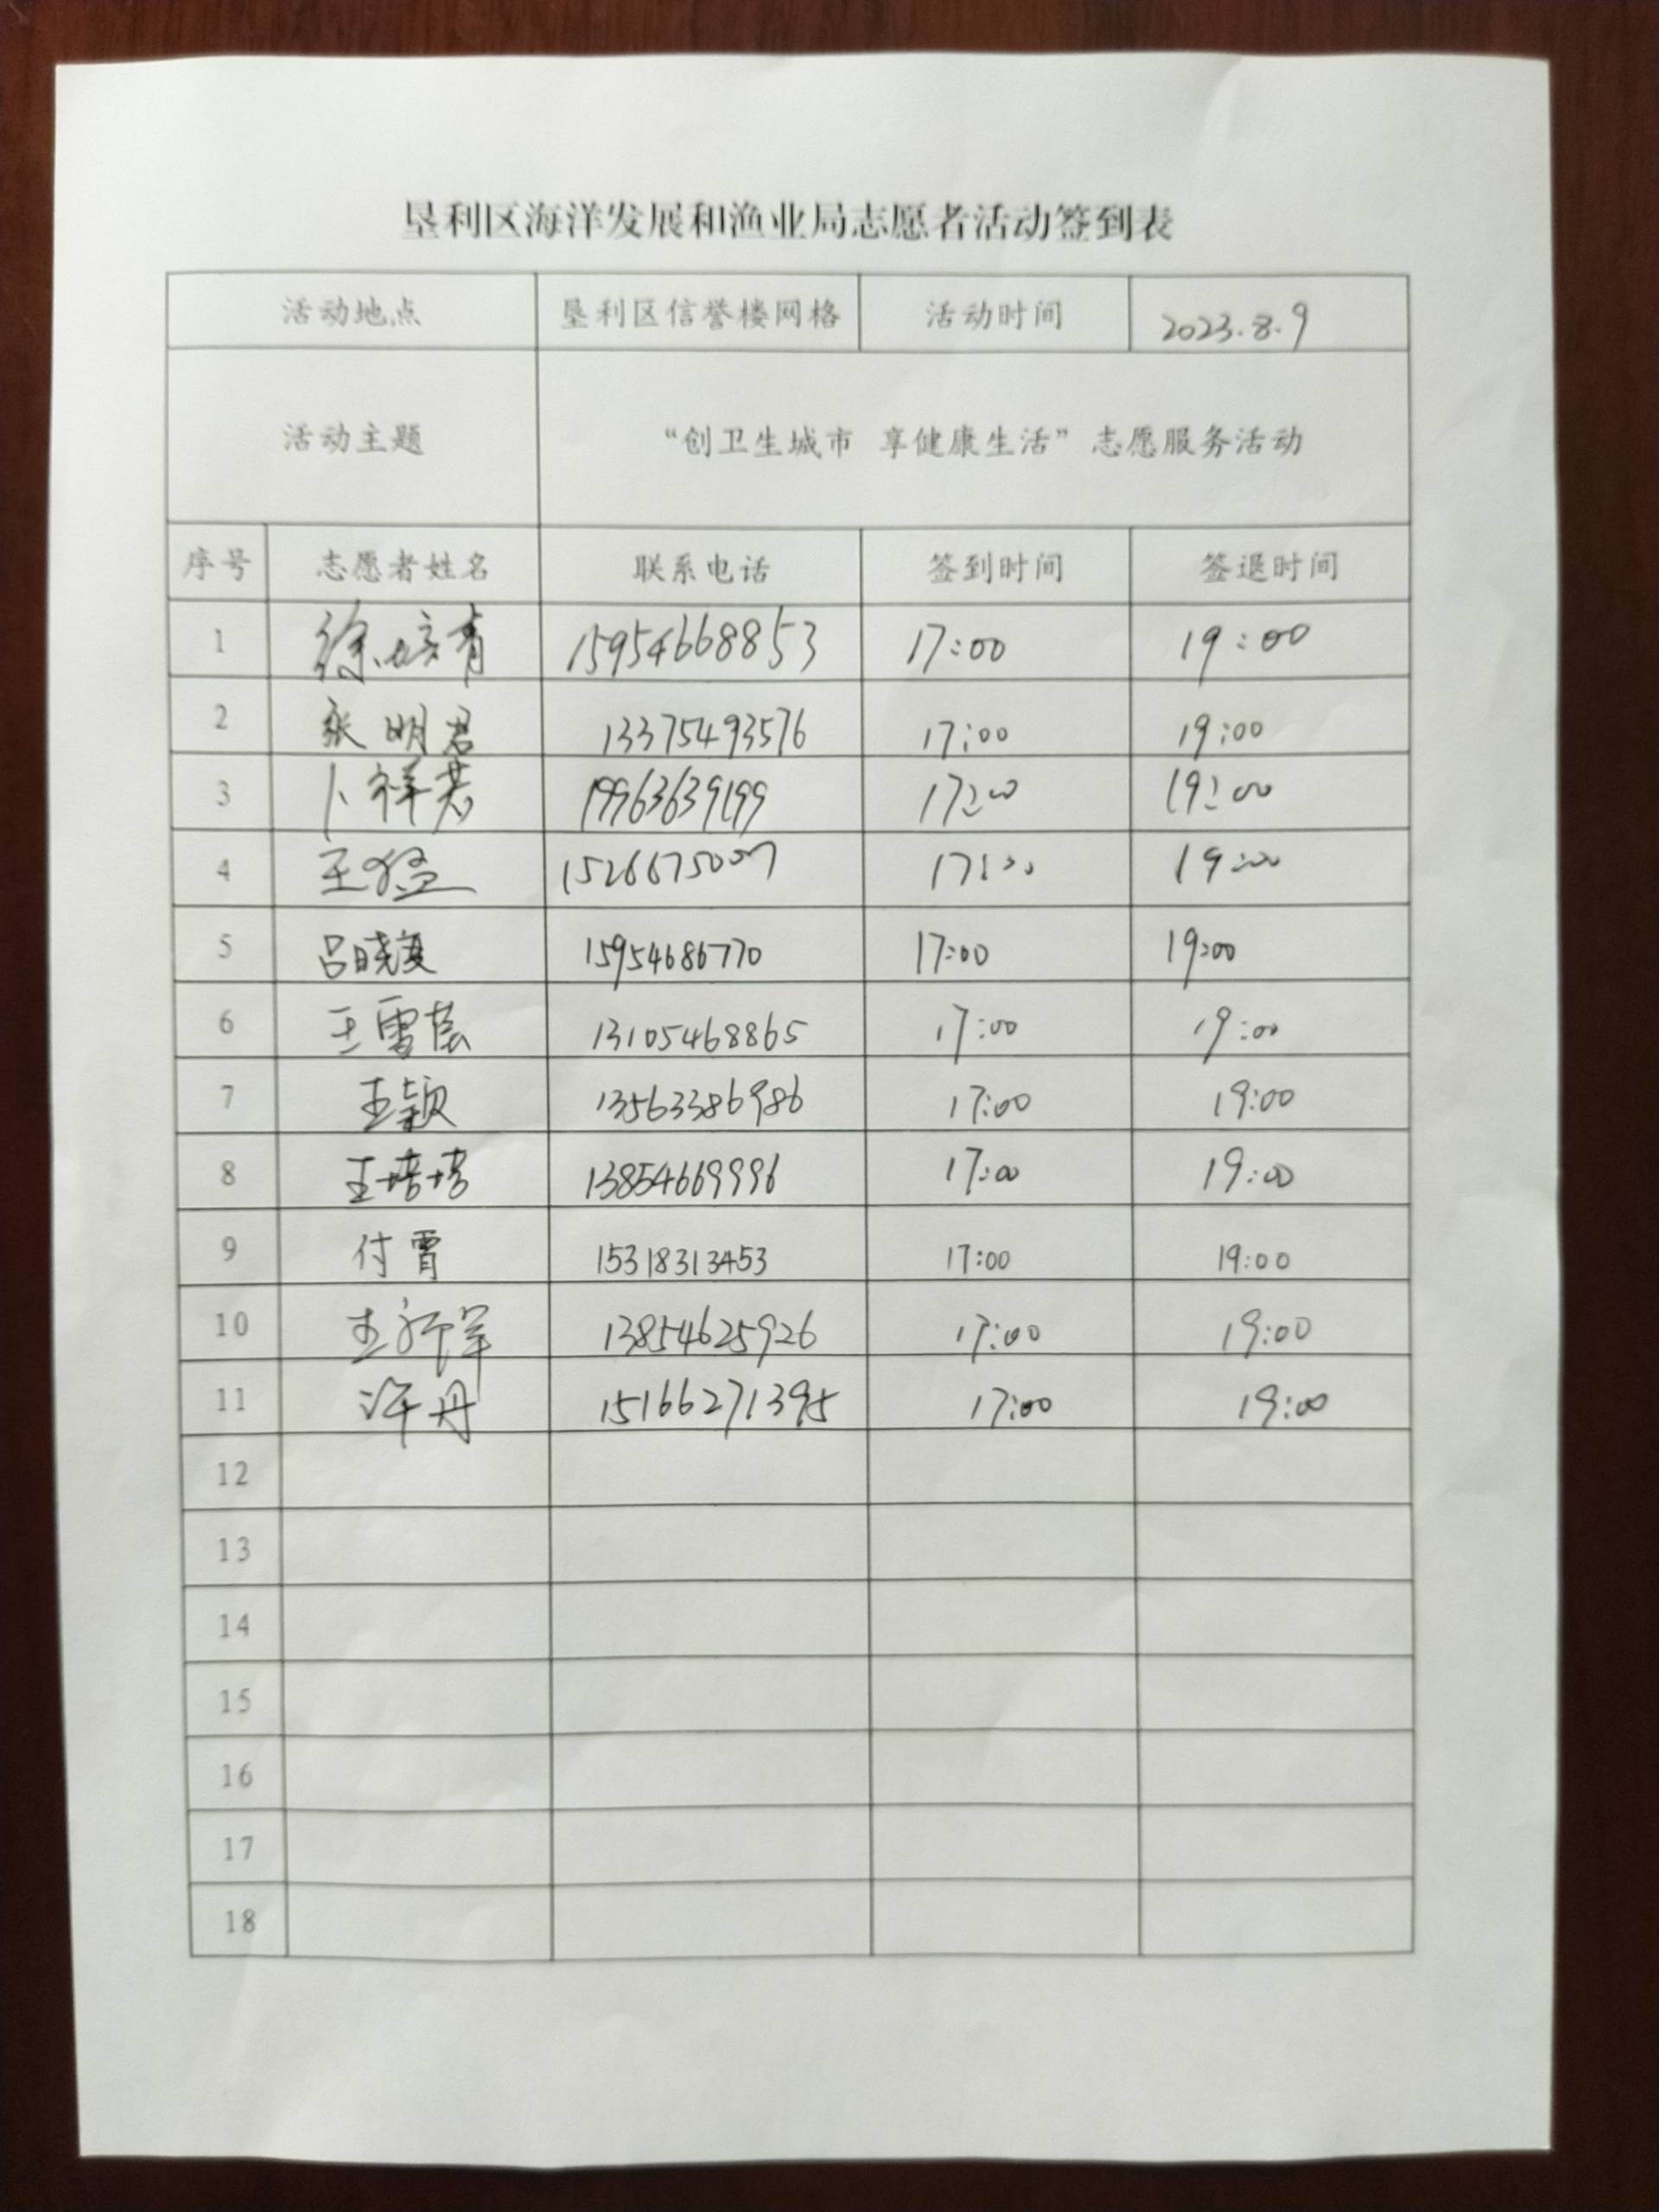 垦利区海洋发展和渔业局志愿者活动签到表
活动地点 垦利区信誉楼网格 活动时间 2023.8.9
活动主题 “创卫生城市 享健康生活”志愿服务活动
序号 志愿者姓名 联系电话 签到时间 签退时间
1 徐培青 15954668853 17:00 19:00
2 张明君 13375493576 17:00 19:00
3 卜祥若 19963639199 17:00 19:00
4 王猛 17:00 19:00
5 吕晓夏 15954686770 17:00 19:00
6 王雪 13105468865 17:00 19:00
7 王颖 13563386986 17:00 19:00
8 王培培 13854669996 17:00 19:00
9 付霄 15318313453 17:00 19:00
10 王 13854625926 17:00 19:00
11 许丹 15166271395 17:00 19:00
12
13
14
15
16
17
18